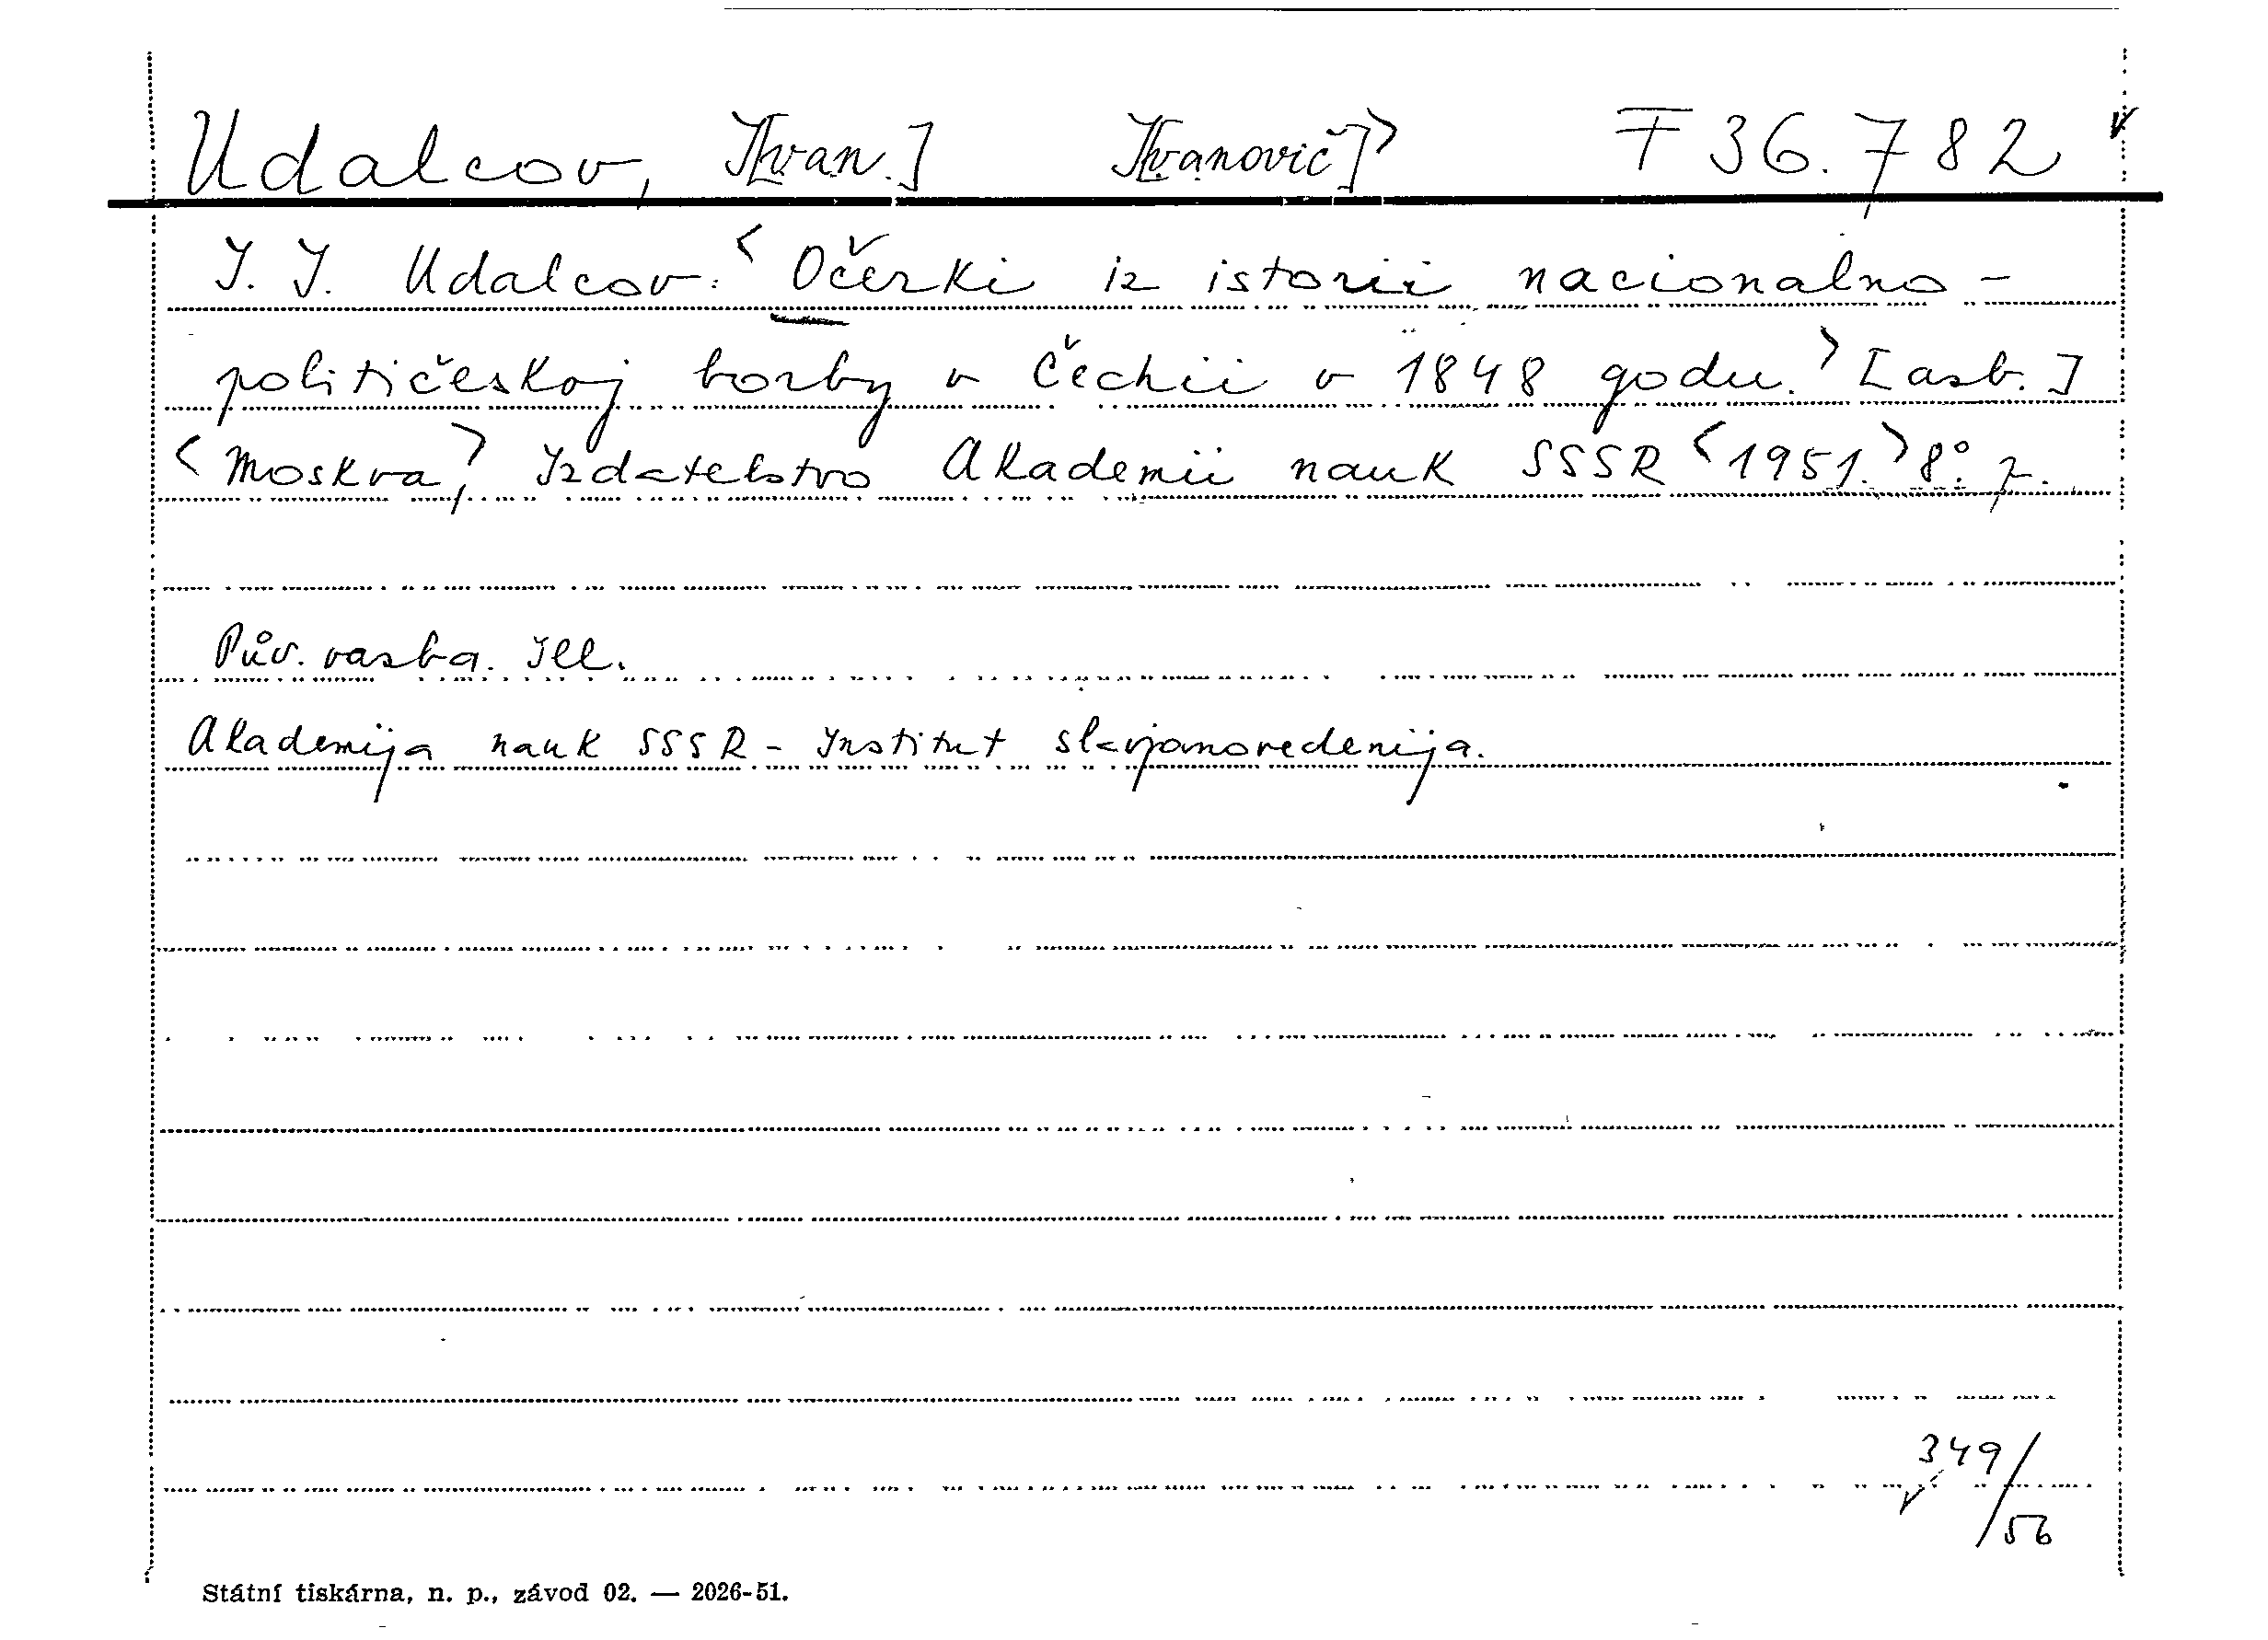 Udalcov, I[van.] I[vanovič]> F 36.782
I. I. Udalcov: <Očerki iz istorii nacionalno-
političeskoj borby v Čechii v 1848 godu.> [asb.]
<Moskva,> Izdatelstvo Akademii nauk SSSR <1951.> 8°.
Pův. vazba. Ill.
Akademija nauk SSSR - Institut slavjanovedenija.
349/
56
Státní tiskárna, n. p., závod 02. — 2026-51.